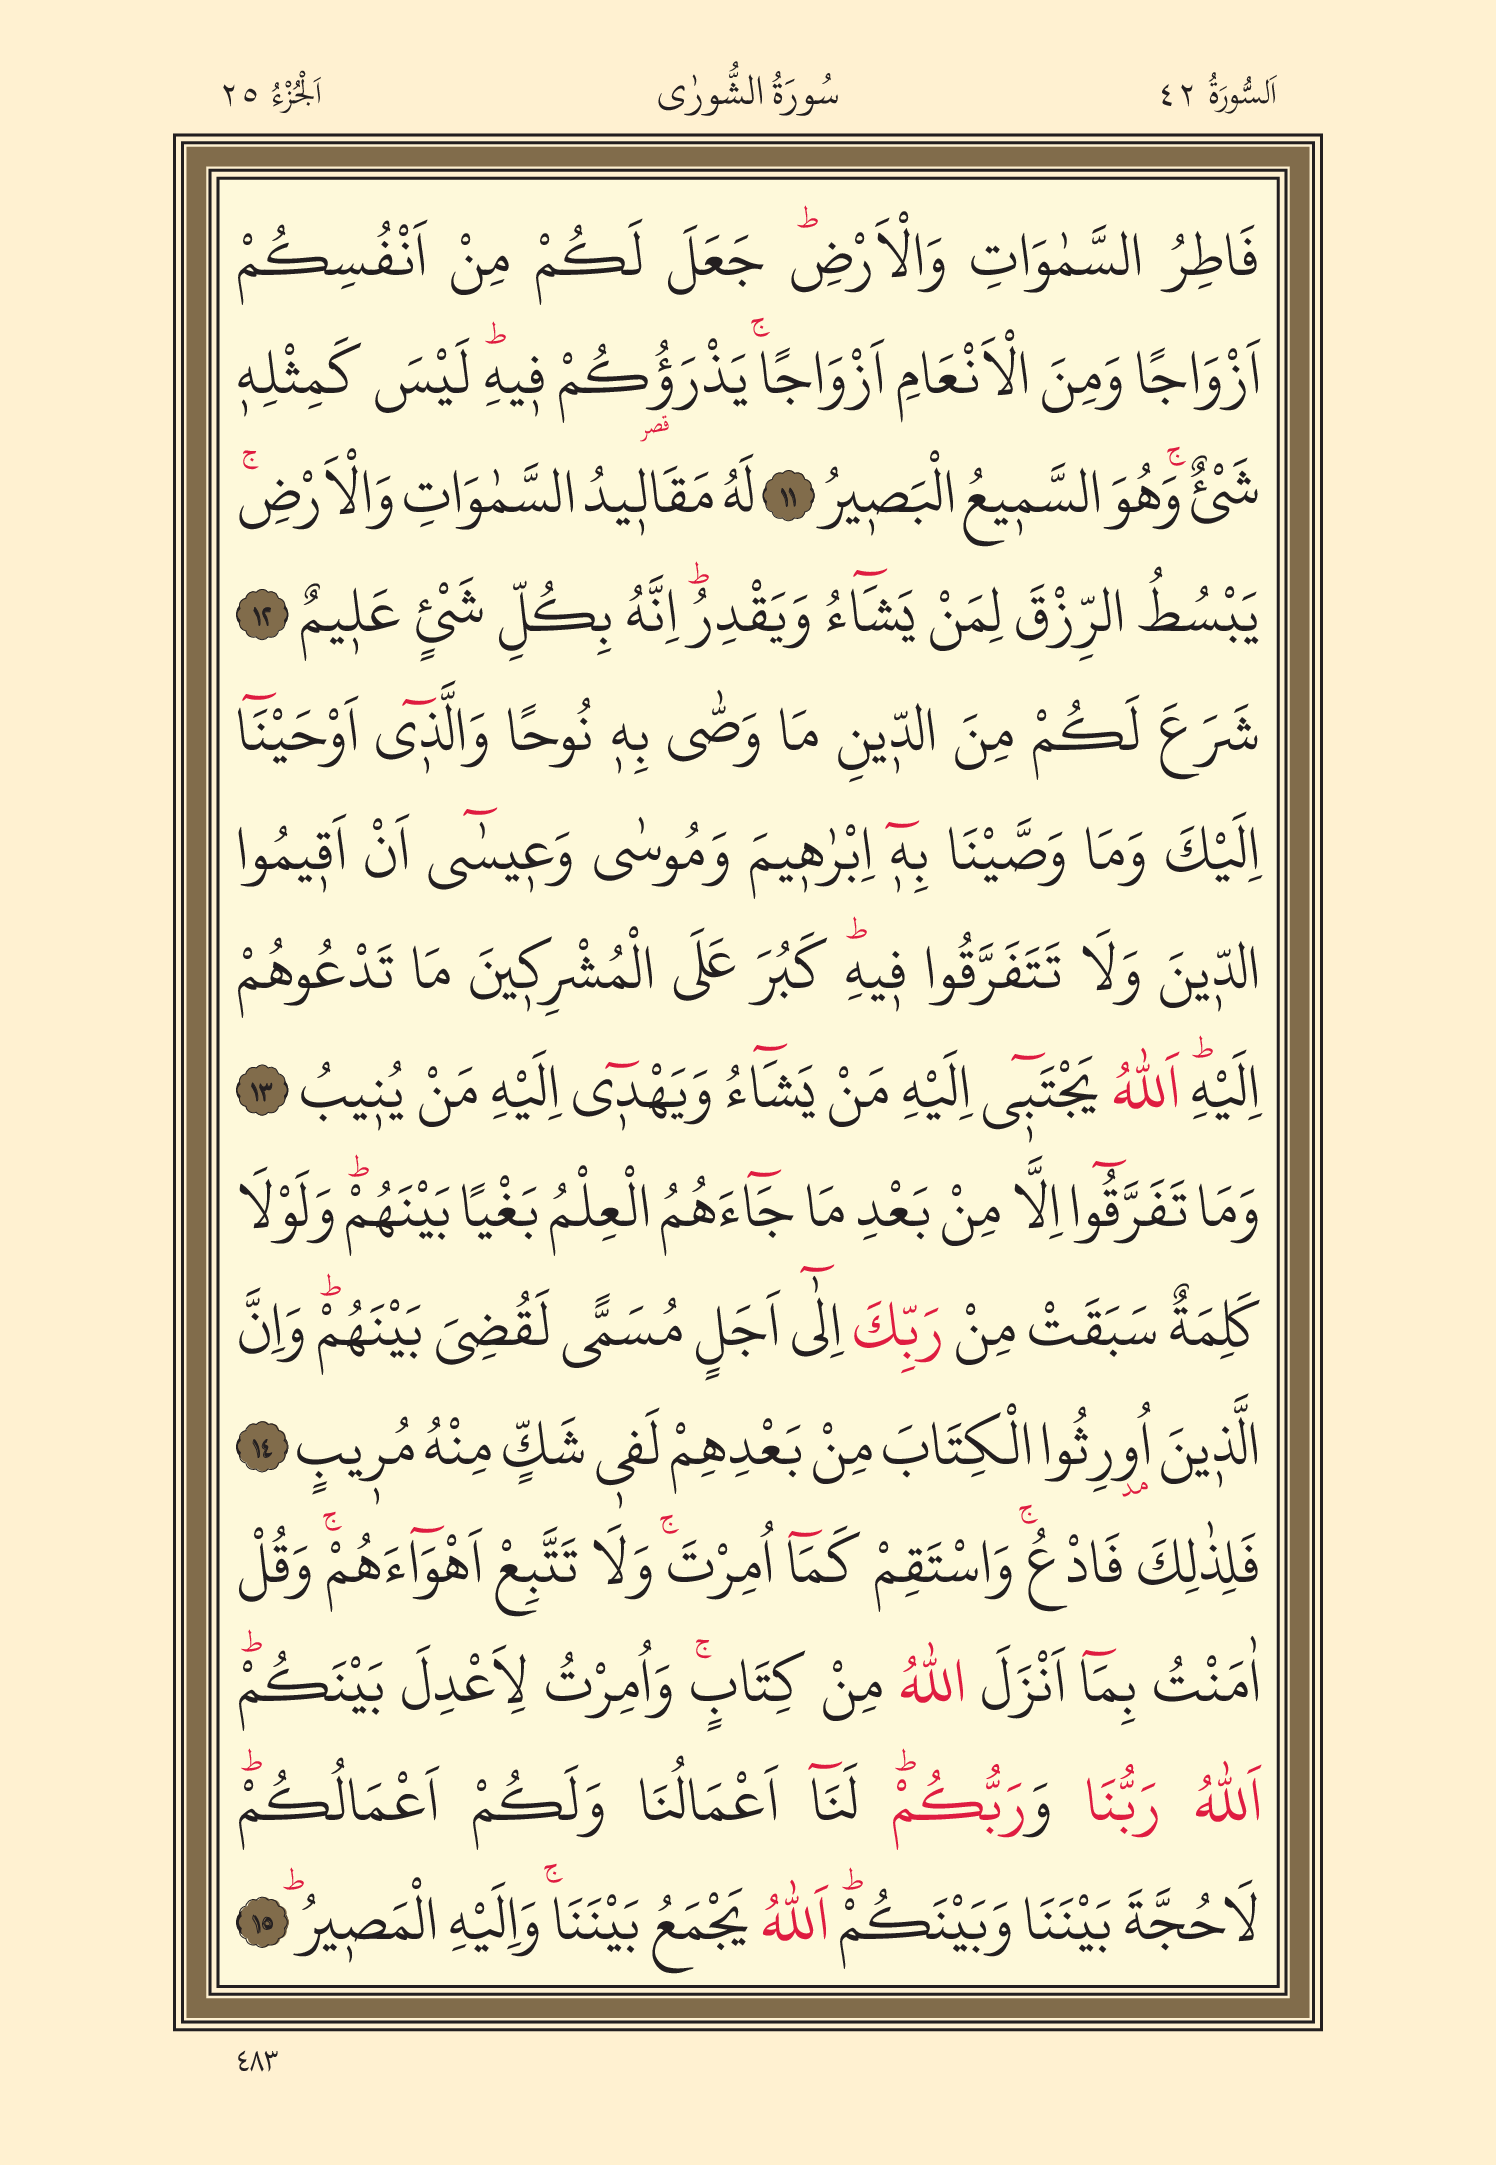 اَلسُّورَةُ ٤٢ سُورَةُ الشُّورٰى اَلْجُزْءُ ٢٥
فَاطِرُ السَّمٰوَاتِ وَالْاَرْضِۜ جَعَلَ لَكُمْ مِنْ اَنْفُسِكُمْ
اَزْوَاجًا وَمِنَ الْاَنْعَامِ اَزْوَاجًاۚ يَذْرَؤُ۬كُمْ ف۪يهِۜ لَيْسَ كَمِثْلِه۪
شَيْءٌۚ وَهُوَ السَّم۪يعُ الْبَص۪يرُ ﴿١١﴾ لَهُ مَقَال۪يدُ السَّمٰوَاتِ وَالْاَرْضِۚ
يَبْسُطُ الرِّزْقَ لِمَنْ يَشَٓاءُ وَيَقْدِرُۜ اِنَّهُ بِكُلِّ شَيْءٍ عَل۪يمٌ ﴿١٢﴾
شَرَعَ لَكُمْ مِنَ الدّ۪ينِ مَا وَصّٰى بِه۪ نُوحًا وَالَّذ۪ٓى اَوْحَيْنَٓا
اِلَيْكَ وَمَا وَصَّيْنَا بِه۪ٓ اِبْرٰه۪يمَ وَمُوسٰى وَع۪يسٰٓى اَنْ اَق۪يمُوا
الدّ۪ينَ وَلَا تَتَفَرَّقُوا ف۪يهِۜ كَبُرَ عَلَى الْمُشْرِك۪ينَ مَا تَدْعُوهُمْ
اِلَيْهِۜ اَللّٰهُ يَجْتَب۪ٓى اِلَيْهِ مَنْ يَشَٓاءُ وَيَهْد۪ٓى اِلَيْهِ مَنْ يُن۪يبُ ﴿١٣﴾
وَمَا تَفَرَّقُٓوا اِلَّا مِنْ بَعْدِ مَا جَٓاءَهُمُ الْعِلْمُ بَغْيًا بَيْنَهُمْۜ وَلَوْلَا
كَلِمَةٌ سَبَقَتْ مِنْ رَبِّكَ اِلٰٓى اَجَلٍ مُسَمًّى لَقُضِىَ بَيْنَهُمْۜ وَاِنَّ
الَّذ۪ينَ اُو۫رِثُوا الْكِتَابَ مِنْ بَعْدِهِمْ لَف۪ى شَكٍّ مِنْهُ مُر۪يبٍ ﴿١٤﴾
فَلِذٰلِكَ فَادْعُۚ وَاسْتَقِمْ كَمَٓا اُمِرْتَۚ وَلَا تَتَّبِعْ اَهْوَٓاءَهُمْۚ وَقُلْ
اٰمَنْتُ بِمَٓا اَنْزَلَ اللّٰهُ مِنْ كِتَابٍۚ وَاُمِرْتُ لِاَعْدِلَ بَيْنَكُمْۜ
اَللّٰهُ رَبُّنَا وَرَبُّكُمْۜ لَنَٓا اَعْمَالُنَا وَلَكُمْ اَعْمَالُكُمْۜ
لَا حُجَّةَ بَيْنَنَا وَبَيْنَكُمْۜ اَللّٰهُ يَجْمَعُ بَيْنَنَاۚ وَاِلَيْهِ الْمَص۪يرُۜ ﴿١٥﴾
٤٨٣